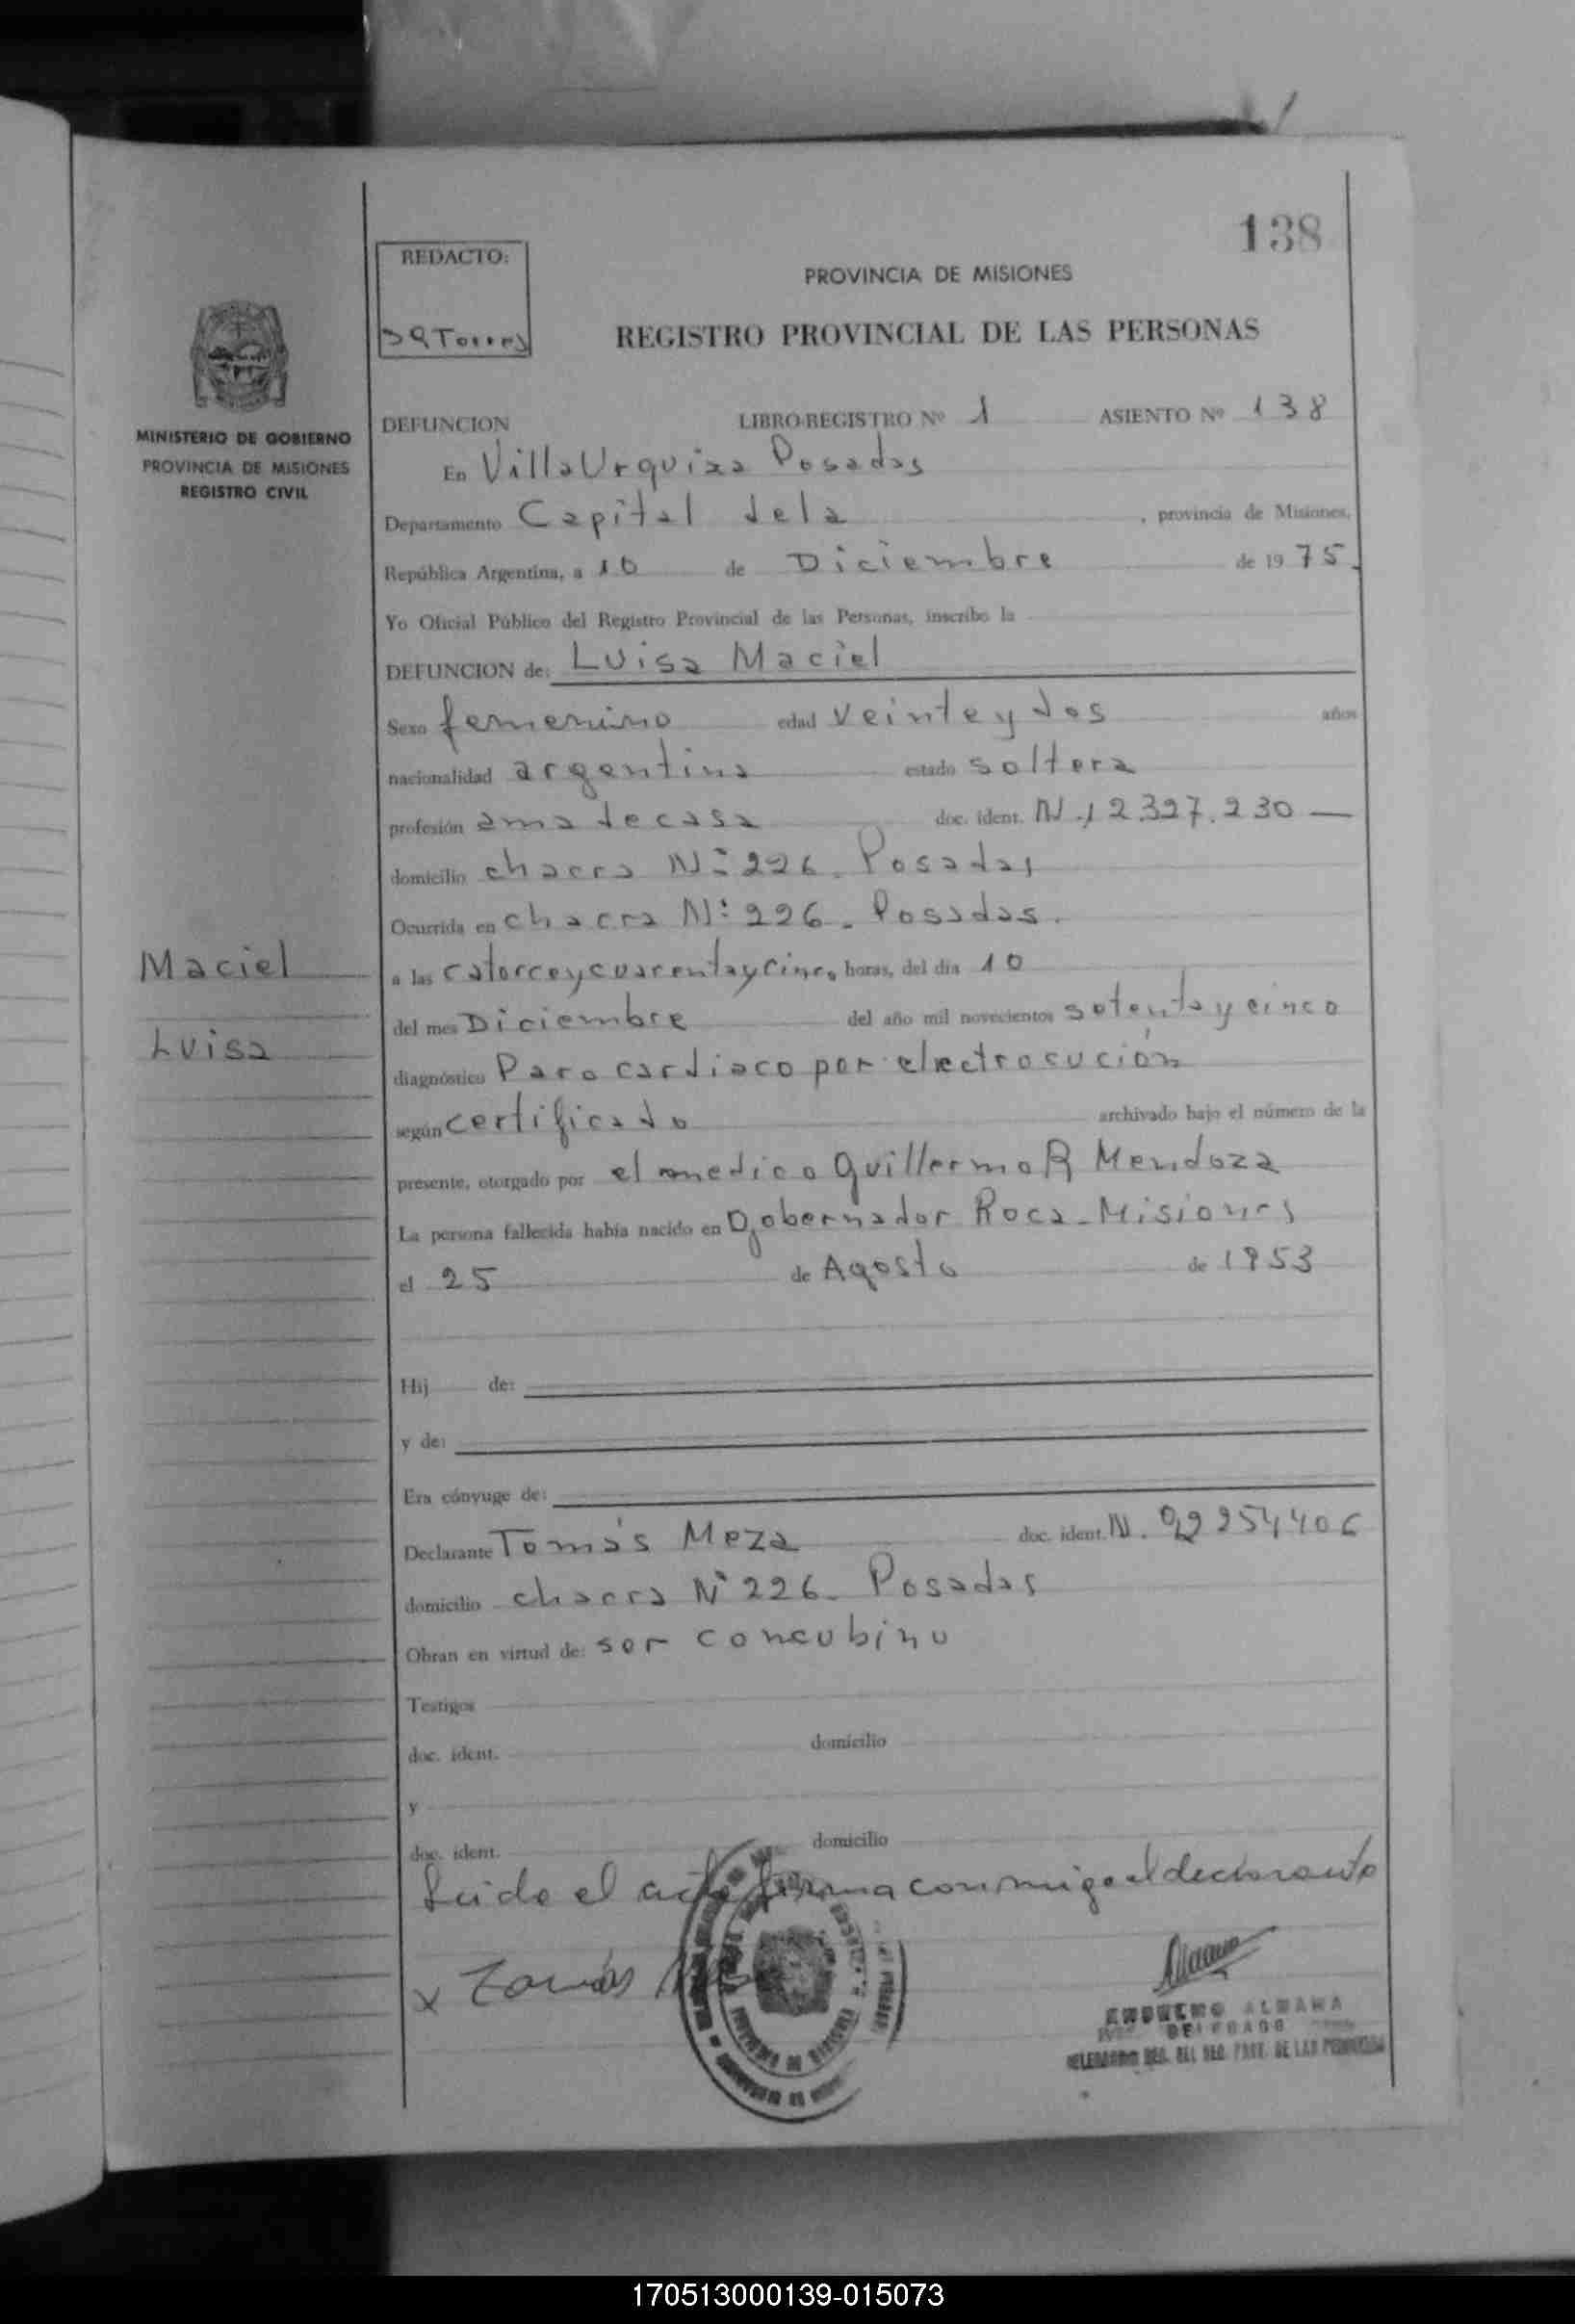 138
REDACTO:
Torres
PROVINCIA DE MISIONES
REGISTRO PROVINCIAL DE LAS PERSONAS
MINISTERIO DE GOBIERNO
PROVINCIA DE MISIONES
REGISTRO CIVIL
DEFUNCION LIBRO-REGISTRO Nº 1 ASIENTO Nº 138
En Villa Urquiza Posadas
Departamento Capital dela , provincia de Misiones,
República Argentina, a 10 de Diciembre de 1975.
Yo Oficial Público del Registro Provincial de las Personas, inscribo la
DEFUNCION de: Luisa Maciel
Sexo femenino edad veinte y dos años
nacionalidad argentina estado soltera
profesión ama de casa doc. ident. N. 12.327.230
domicilio chacra Nº 226. Posadas
Ocurrida en chacra Nº 226. Posadas.
Maciel
Luisa
a las catorce y cuarenta y cinco horas, del día 10
del mes Diciembre del año mil novecientos setenta y cinco
diagnóstico Paro cardiaco por electrocución
según certificado archivado bajo el número de la
presente, otorgado por el medico Guillermo R Mendoza
La persona fallecida había nacido en Gobernador Roca - Misiones
el 25 de Agosto de 1953
Hij de:
y de:
Era cónyuge de:
Declarante Tomás Meza doc. ident. N.
domicilio chacra Nº 226. Posadas
Obran en virtud de: ser concubino
Testigos
doc. ident. domicilio
y
doc. ident. domicilio
Leido el acta firma conmigo el declarante
x Tomás
DELEGADO
170513000139-015073